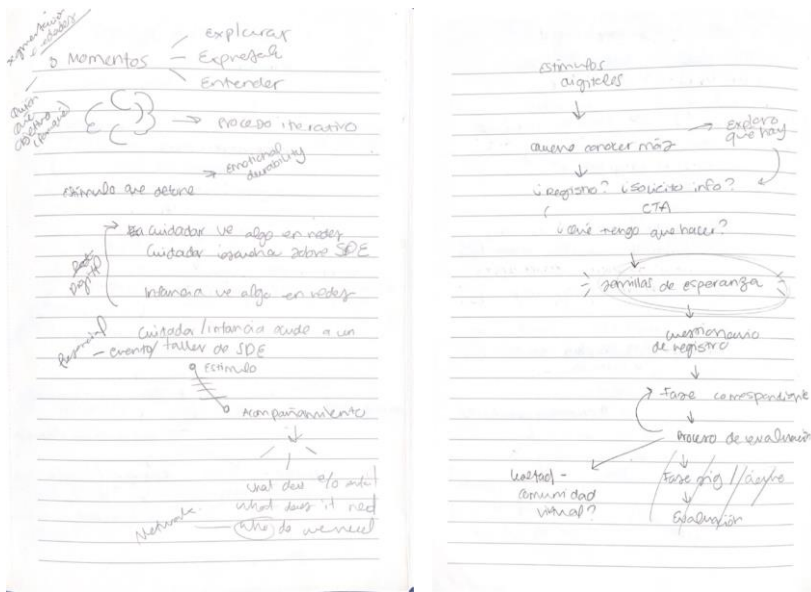 segmentación
edades
3 Momentos
Explorar
Expresar
Entender
Quién
Qué
objetivo
Proceso iterativo
emotional
durability
Estímulo que detone
cuidador ve algo en redes
Cuidador sobre SDE
Digital
Infancia ve algo en redes
Presencial
Cuidador/infancia acude a un
evento/taller de SDE
Estímulo
Acompañamiento
what does it need
Network
who do we need
Estímulos
digitales
quiere conocer más
Exploro
que hay
¿Registro? ¿Solicito info?
CTA
¿Qué tengo que hacer?
semillas de esperanza
cuestionario
de registro
Fase correspondiente
Proceso de evaluación
comunidad
virtual?
Fase
Evaluación